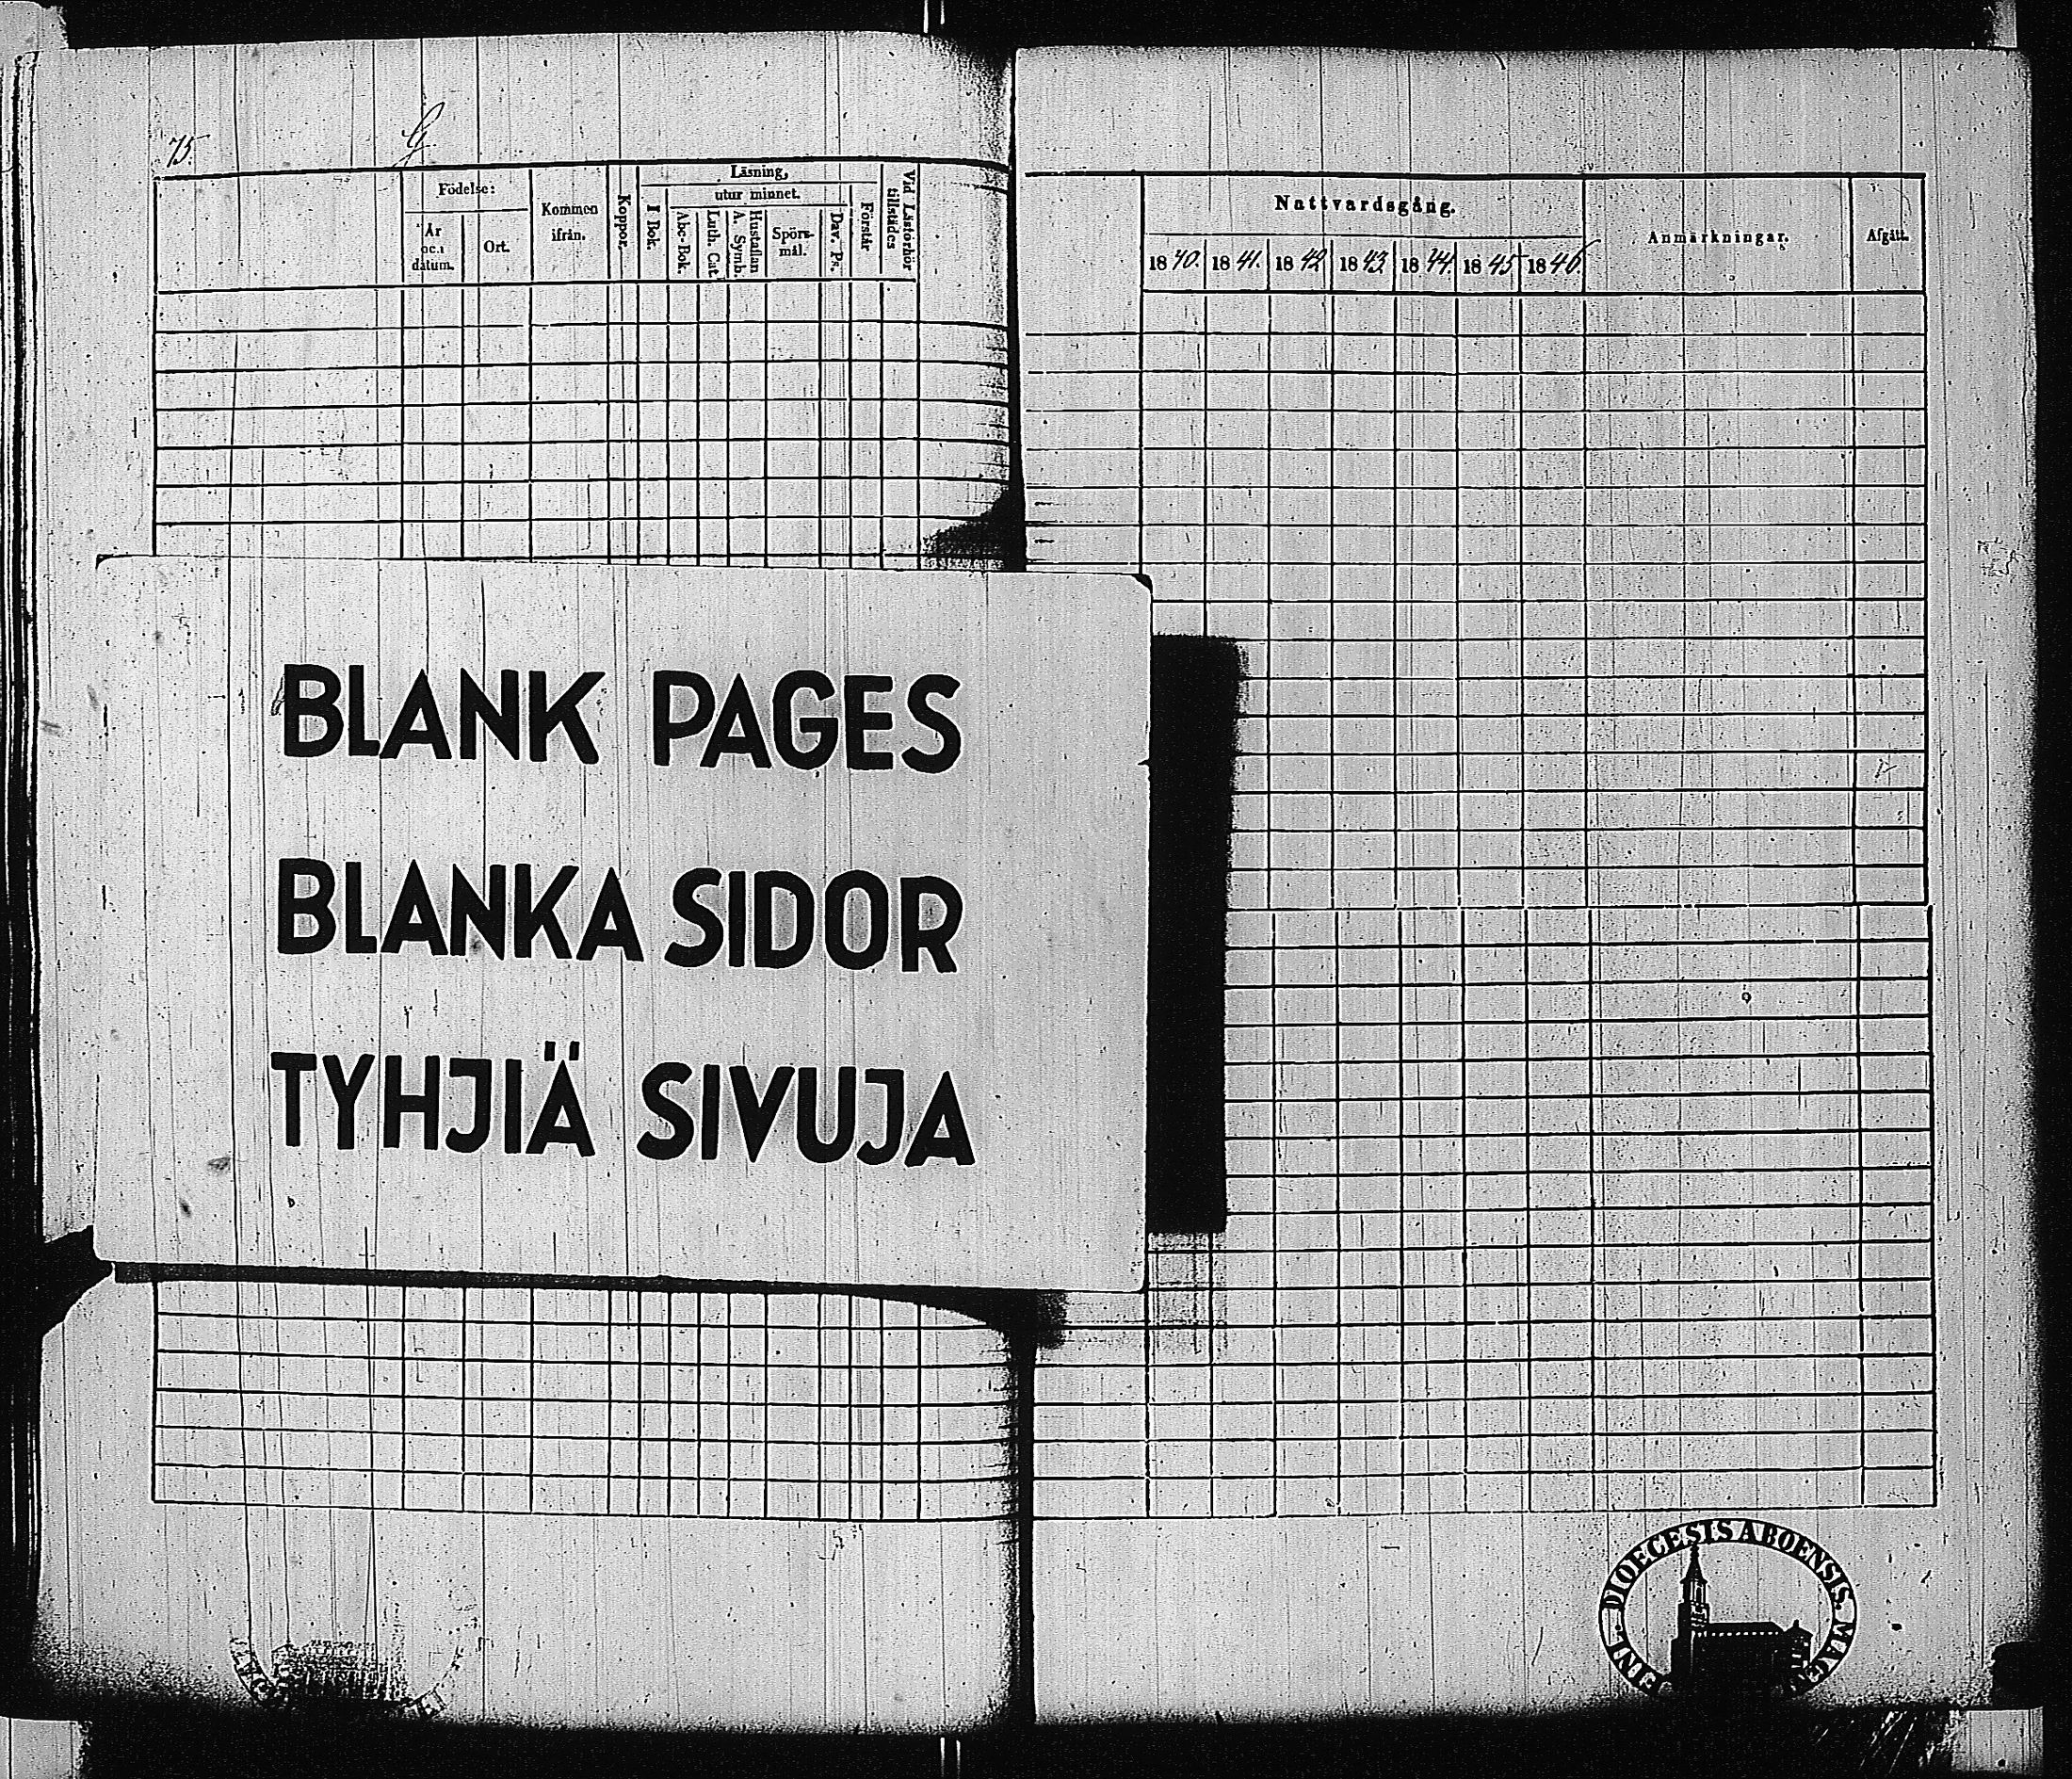 75
G
Födelse:
År och datum.
Ort.
Kommen ifrån.
Koppor.
Läsning,
I Bok.
utur minnet.
Abc-Bok.
Luth. Cat.
Hustaflan A. Symb.
Spörs-mål.
Dav. Ps.
Förstår
Vid Läsförhör tillstädes
Nattvardsgång.
1840. 1841. 1842 1843. 1844. 1845 1846.
Anmärkningar.
Afgått.
BLANK PAGES
BLANKA SIDOR
TYHJIÄ SIVUJA
DIOECESIS ABOENSIS.